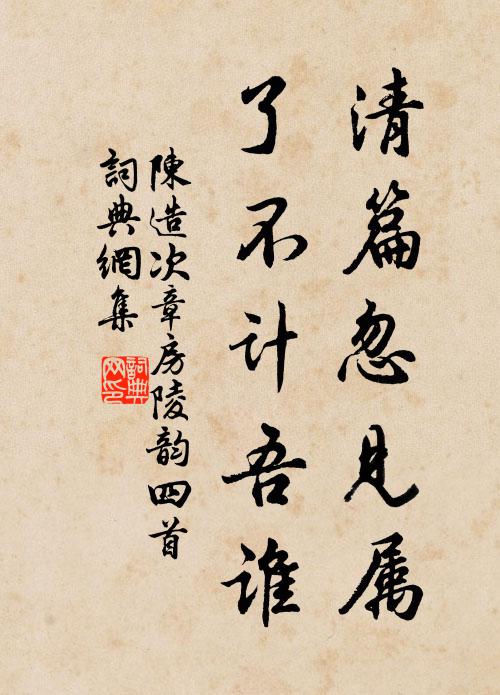 清篇忽見属
了不计吾谁
陳造次章房陵韵四首
詞典網集
詞典
网印